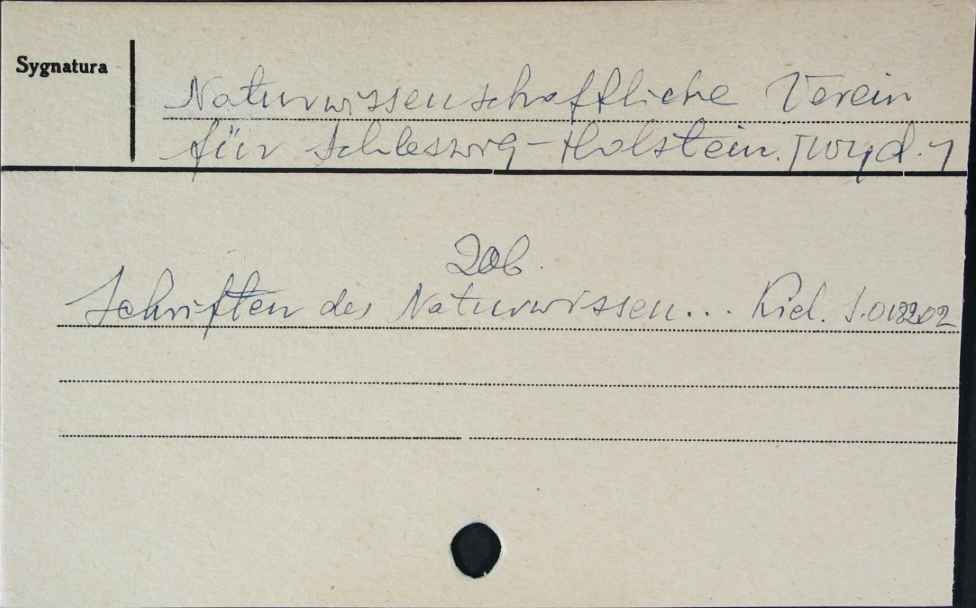 Sygnatura
Naturwissenschaftliche Verein
für Schleswig-Holstein. [wyd.]
Zob.
Schriften des Naturwissen... Kiel. S.018202